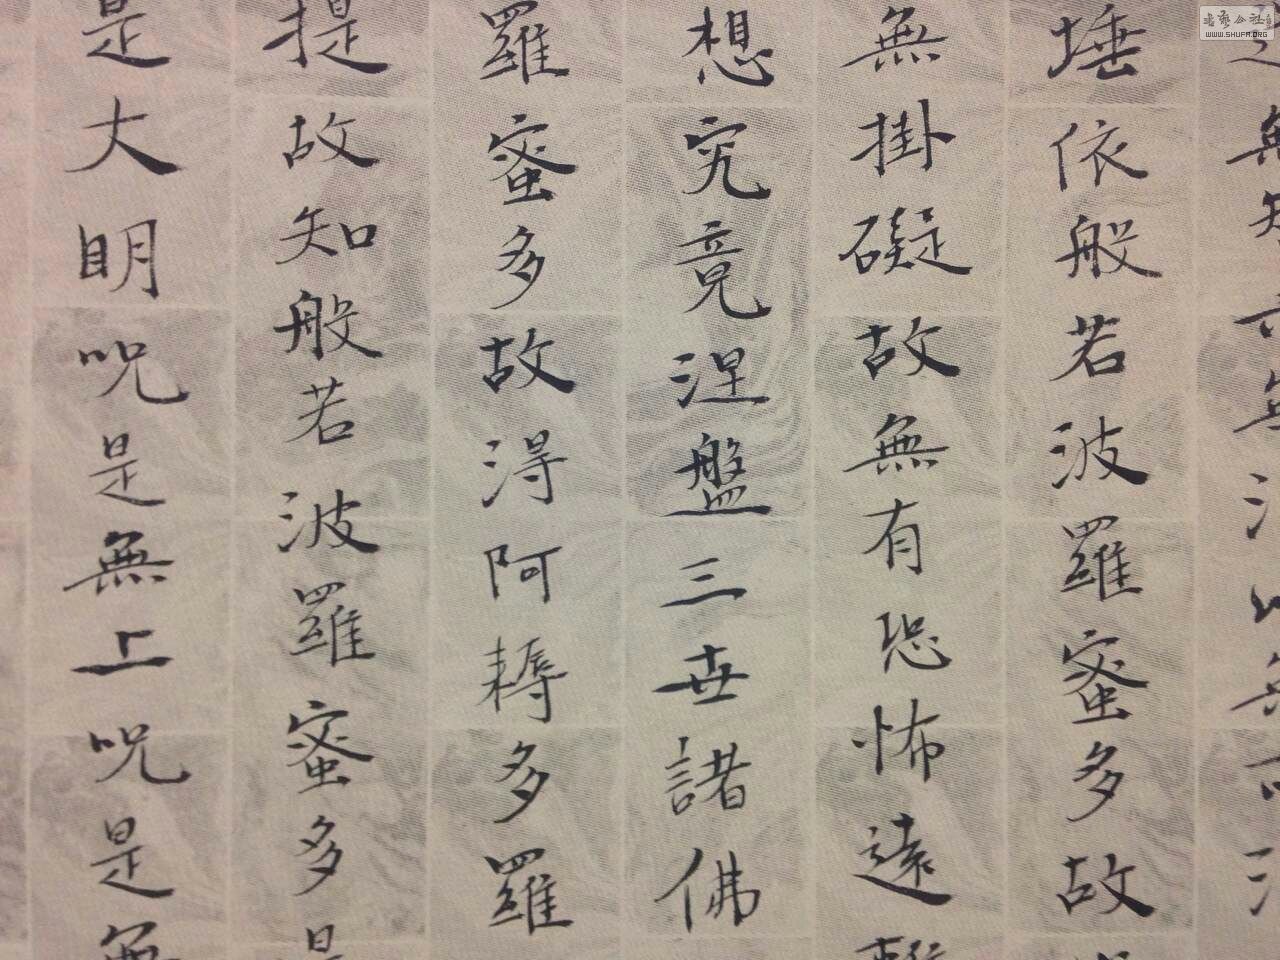 無知亦無
埵依般若波羅蜜多故
無掛礙故無有恐怖遠
想究竟涅盤三世諸佛
羅蜜多故得阿耨多羅
提故知般若波羅蜜多是
是大明呪是無上呪是無
WWW.SHUFA.ORG